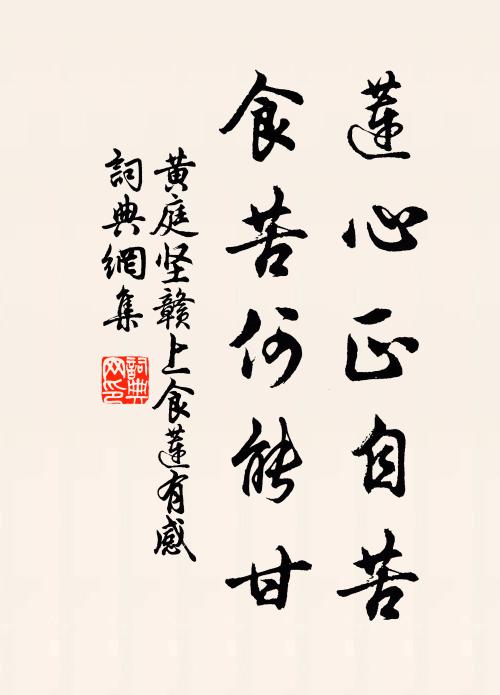 蓮心正自苦
食苦何能甘
黄庭坚赣上食蓮有感
詞典網集
詞典网印